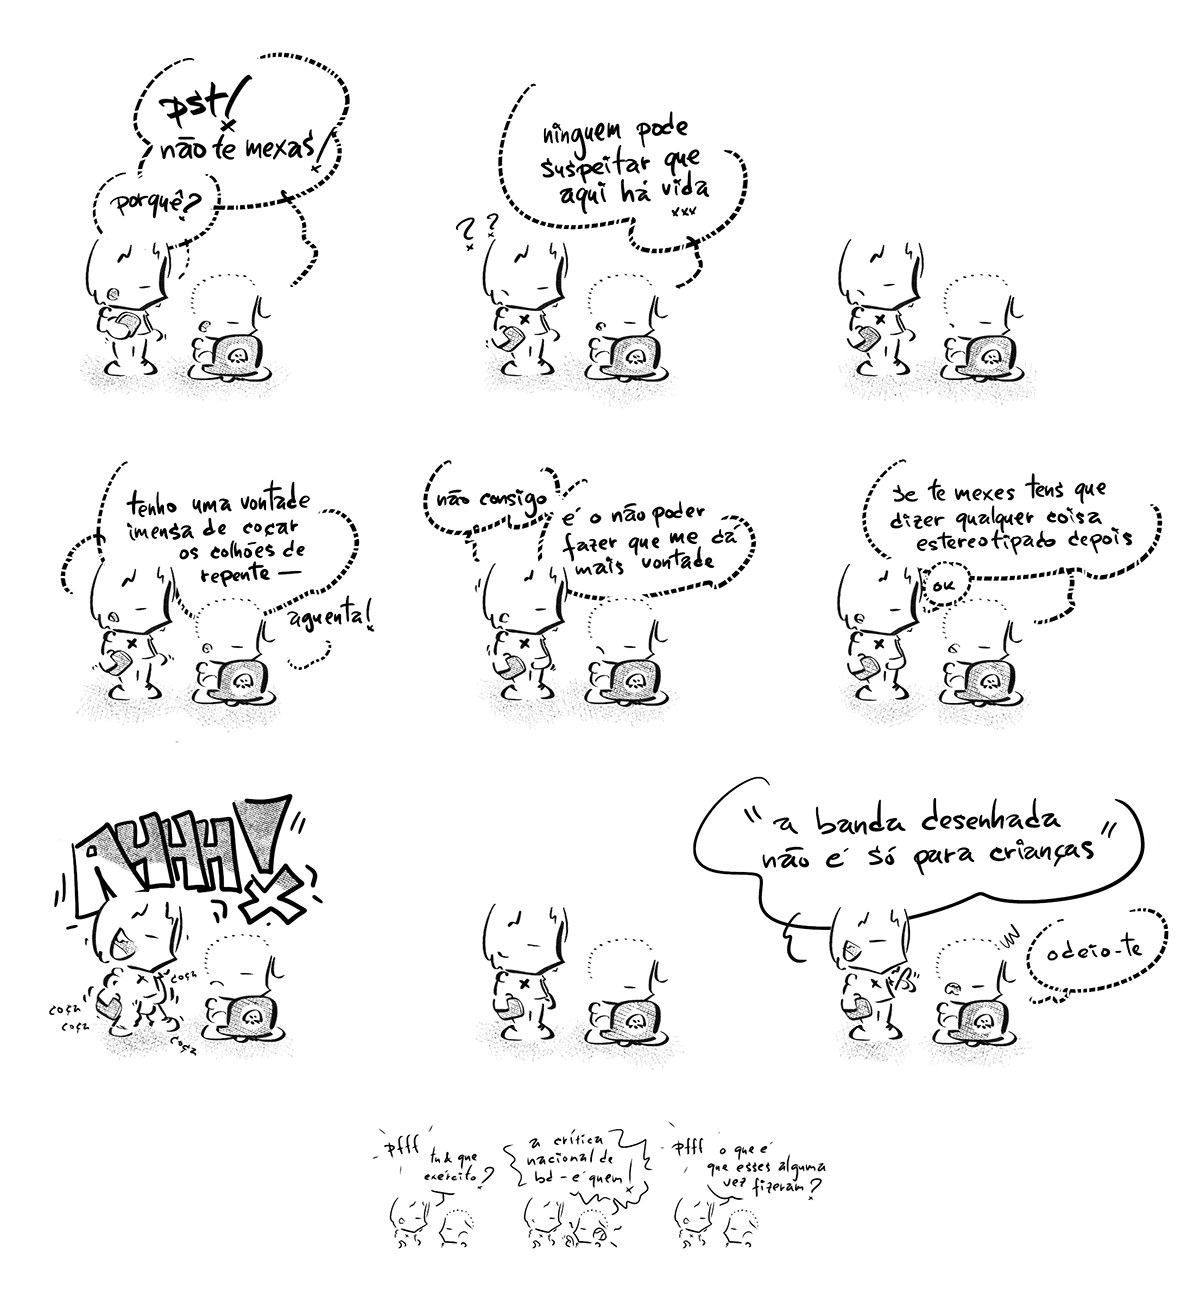 pst!
não te mexas!
porquê?
ninguem pode
suspeitar que
aqui há vida
...
? ?
tenho uma vontade
imensa de coçar
os colhões de
repente —
aguenta!
não consigo
é o não poder
fazer que me dá
mais vontade
se te mexes tens que
dizer qualquer coisa
estereotipado depois
ok
AHHH!
coça
coça
coça
coça
"a banda desenhada
não é só para crianças"
odeio-te
pfff
tu & que
exército?
a crítica
nacional de
bd - é quem!
pfff
o que é
que esses alguma
vez fizeram?